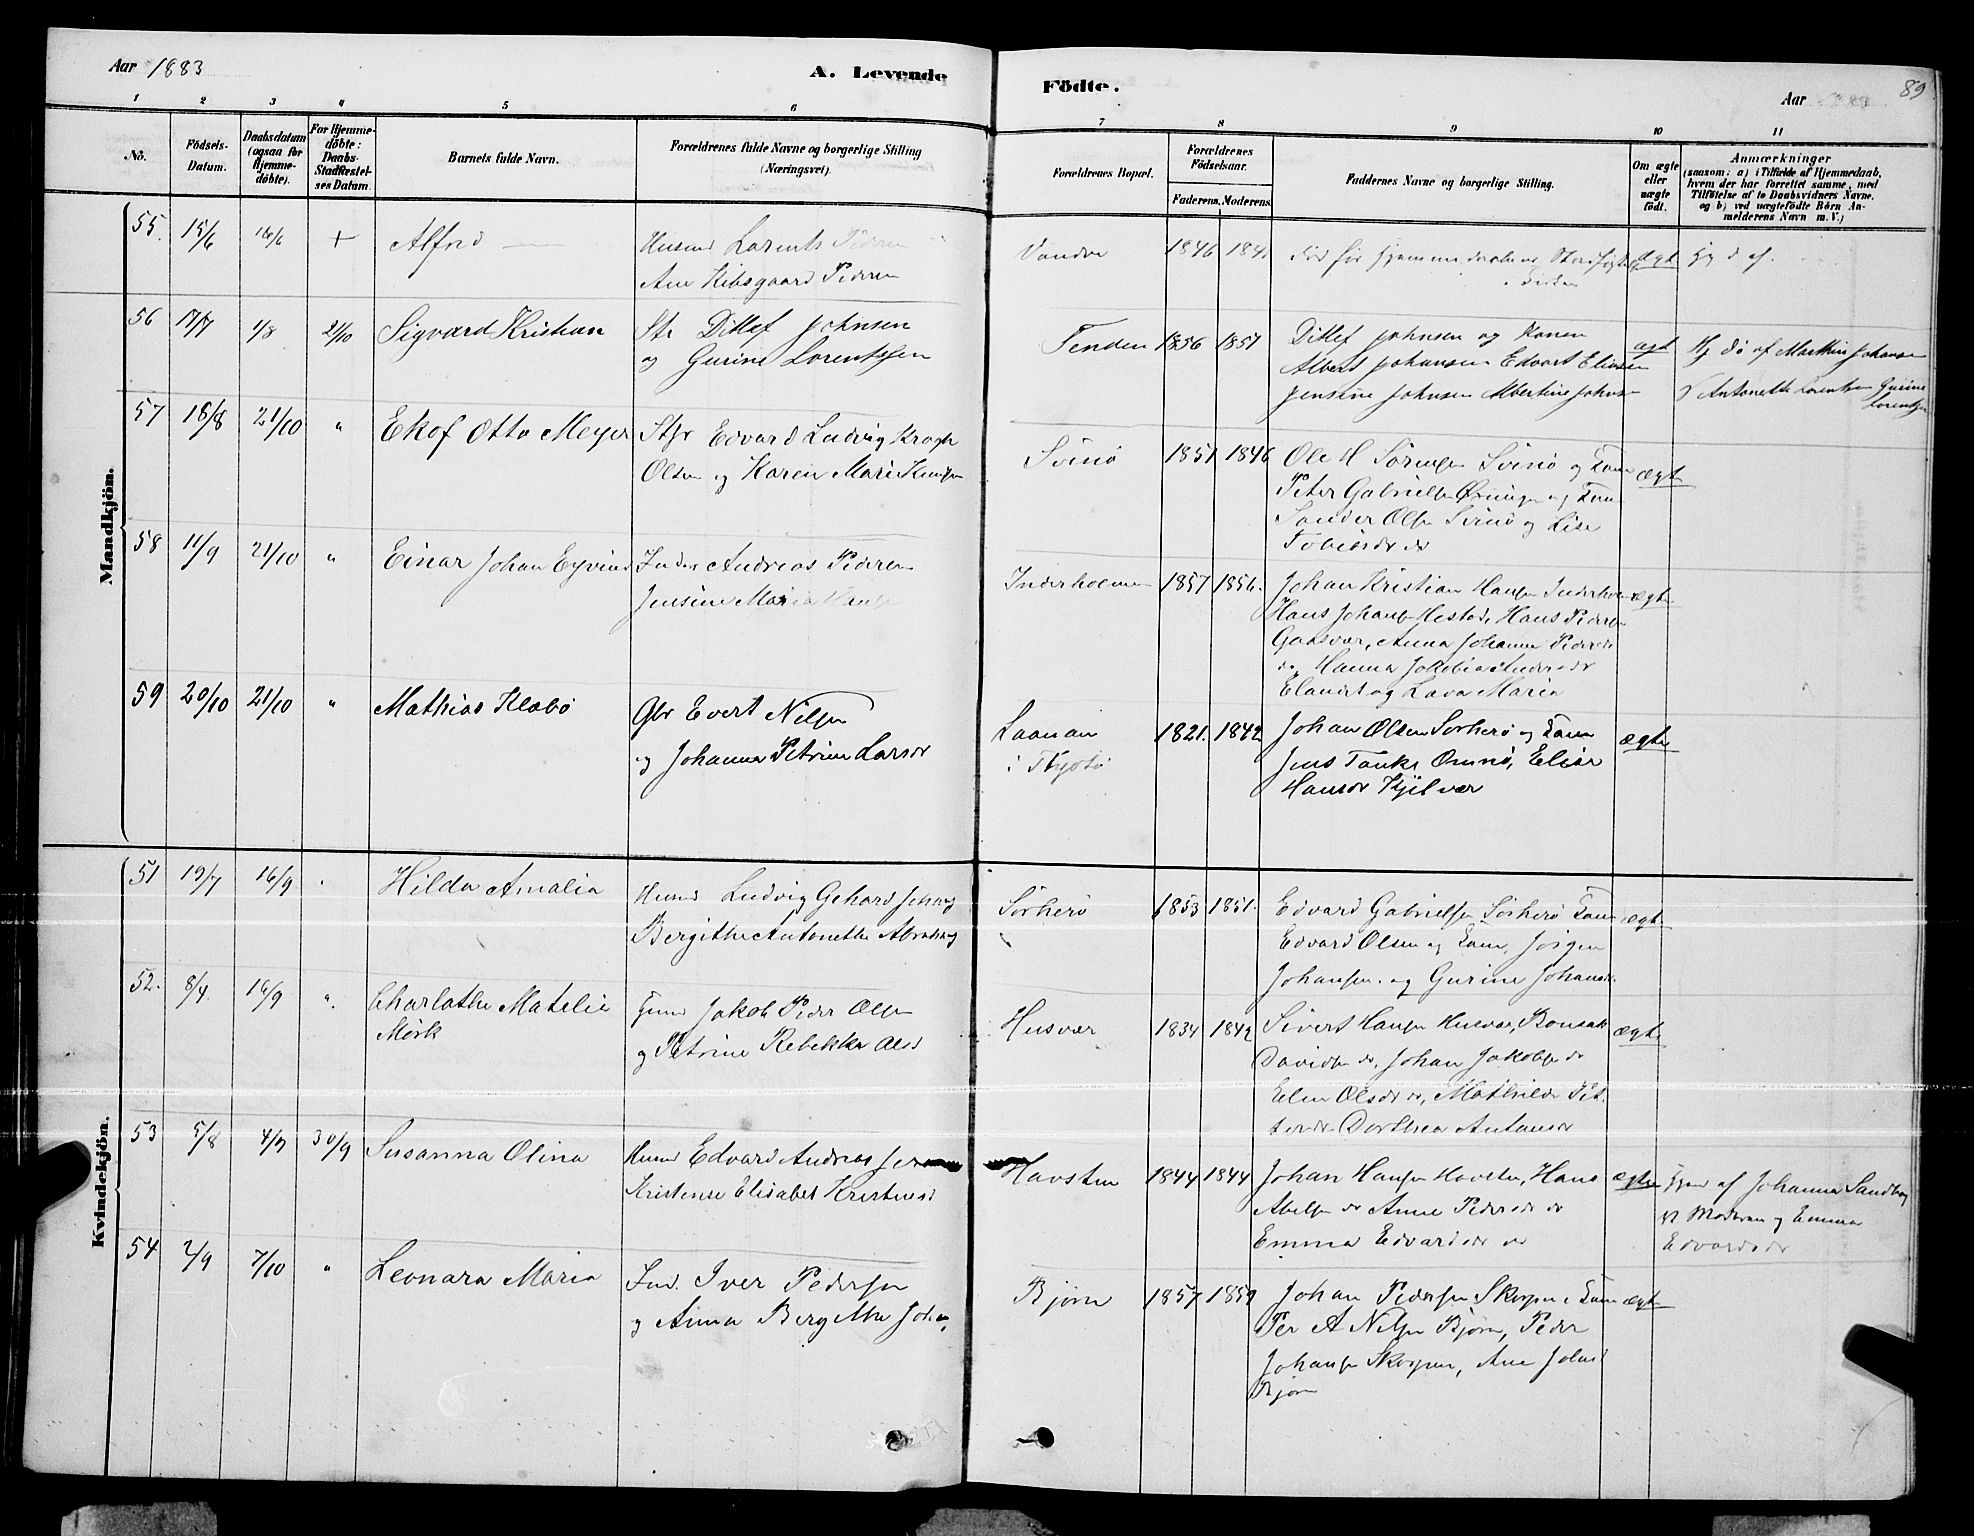 Aar 1883
A. Levende
Födte.
Aar
89
1 2 3 4 5 6 7 8 9 10 11
No.
Födsels-
Datum.
Daabsdatum
(ogsaa for
Hjemme-
döbte).
For Hjemme-
döbte:
Daabs-
Stadfæstel-
ses Datum.
Barnets fulde Navn.
Forældrenes fulde Navne og borgerlige Stilling
(Næringsvei).
Forældrenes Bopæl.
Forældrenes
Födselsaar.
Faderens. Moderens.
Faddernes Navne og borgerlige Stilling.
Om ægte
eller
uægte
födt.
Anmærkninger
(saasom: a) i Tilfælde af Hjemmedaab,
hvem der har forrettet samme, med
Tilföielse af to Daabsvidners Navne.
og b) ved uægtefödte Börn An-
melderens Navn m. V.)
Mandkjön.
55. 15/6 16/6 + Alfred
Husmd Lorents Pedersen
Ane Kibsgaard Pedersen
Vandve 1846
ægt
56 17/7 1/8 21/10 Sigvard Kristian
Str Ditlef Johnsen
og Gurine Lorentssen
Tenden 1856 1857
Ditlef Johnsen og Konen
Albert Johansen Edvart Eliasen
Jensine Johnsen Albertine Johns
ægt
Hj dö af Marthin Johansen
Antonette Lorentsen Gurine
Lorentsen
57 18/8 21/10 "
Ekof Otto Meyer
Stfr Edvard Ludvig Krogh
Olsen og Karen Marie
Svinö 1851 1846
Ole H Sörensen Svinö og Kone
Peter Gabrielsen og Kone
Sander Olsen Svinö og Lise
Tobiasdr do
ægte
58 11/9 21/10 "
Einar Johan Eyvind
Andreas Pedersen
Jensine Maria Hansen
Inderholmen 1857 1856.
Johan Kristian Hansen Inderholm
Hans Johansen Hestö, Hans Pedersen
Gaasvær, Anna Johanna Pedersdr
do, Hanna Jakobia Andersdr
og Lava Maria
ægte
59 20/10 21/10 "
Mathias Klæbö
Gbr Evert Nilsen
og Johanna Petrine Larsdr
Laanan
i Thjötö
1821. 1842
Johan Olsen Sörherö og Kone
Jens Tanke Omnö, Elisa
Hansdr Kjelvær
ægte
Kvindekjön.
51 19/7 16/9
Hilda Amalia
Husmd Ludvig Gehard
Bergithe Antonette
Sörherö 1853 1851.
Edvard Gabrielsen Sörherö Kone
Edvard Olsen og Kone, Jörgen
Johansen og Gurine Johansdr.
ægte
52. 8/4 16/9 "
Charlathe Matelie
Mörk
Jakob Peder Olsen
og Petrine Rebekka Olsd
Husvær 1834 1842
Sivert Hansen Husvær, Bonsak
Davidsen do, Johan Jakobsen do
Elen Olsdr do, Mathilde Pet-
tersdr Dorthea Antonsdr
ægte
53 5/8 4/9 30/9
Susanna Olina
Husmd Edvard Andreas
Kristense Elisabet Kristensd
Havsten 1844 1844
Johan Hansen Havsten, Hans
Abelsen do Anne Pedersdr do
Emma Edvardsdr do
ægte
Hjmd af Johanna Sandberg
Moderen og Emma
Edvardsdr
54 2/9 7/10 "
Leonara Maria
Ind. Iver Pedersen
og Anna Bergitha Johan
Bjørn 1857 1859
Johan Pedersen Skorpen Kone
Per A Nilsen Bjørn, Peder
Johansen Skorpen, Ane Johnsd
Bjørn
ægte